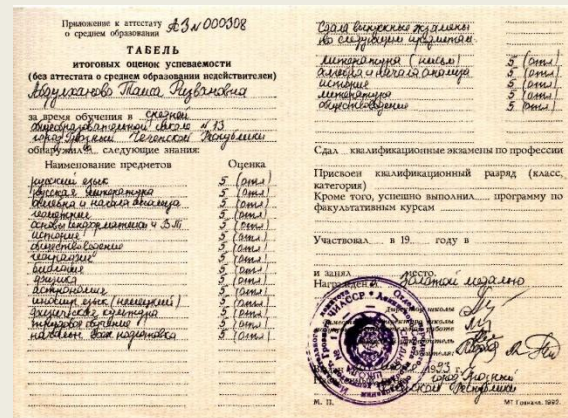 Приложение к аттестату АЗ № 000308
о среднем образовании
ТАБЕЛЬ
итоговых оценок успеваемости
(без аттестата о среднем образовании недействителен)
Абдулханова Таиса Ризвановна
за время обучения в средней
общеобразовательной школе № 13
город Грозный Чеченской Республики
обнаружила следующие знания:
Наименование предметов Оценка
русский язык 5 (отл)
русская литература 5 (отл)
алгебра и начала анализа 5 (отл)
геометрия 5 (отл)
основы информатики и ВТ 5 (отл)
история 5 (отл)
обществоведение 5 (отл)
география 5 (отл)
биология 5 (отл)
физика 5 (отл)
астрономия 5 (отл)
иностр язык (немецкий) 5 (отл)
физическая культура 5 (отл)
трудовое обучение 5 (отл)
начальн. воен подготовка 5 (отл)
Сдала выпускные экзамены
по следующим предметам:
литература (письм) 5 (отл)
алгебра и начала анализа 5 (отл)
история 5 (отл)
литература 5 (отл)
обществоведение 5 (отл)
Сдал квалификационные экзамены по профессии
Присвоен квалификационный разряд (класс,
категория)
Кроме того, успешно выполнил программу по
факультативным курсам
Участвовал в 19 году в
и занял место.
Награжден золотой медалью
Директор школы
1993 г.
город Грозный
Чеченской Республики
М. П.
МТ Гознака. 1992.